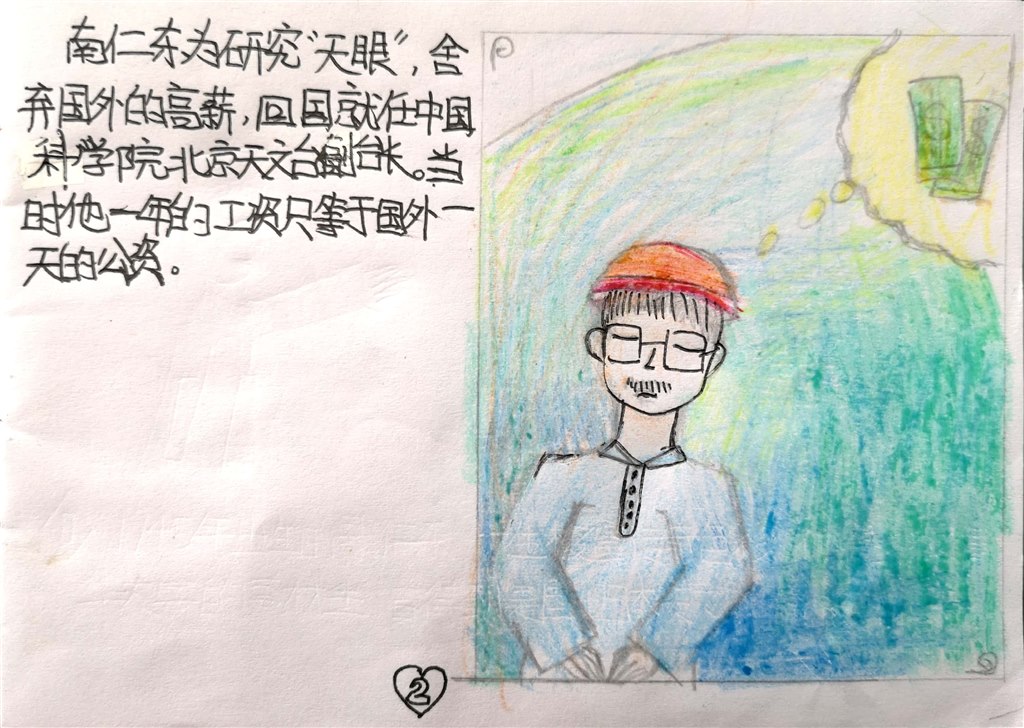 南仁东为研究“天眼”，舍
弃国外的高薪，回国就任中国
科学院北京天文台副台长。当
时他一年的工资只等于国外一
天的公资。
2